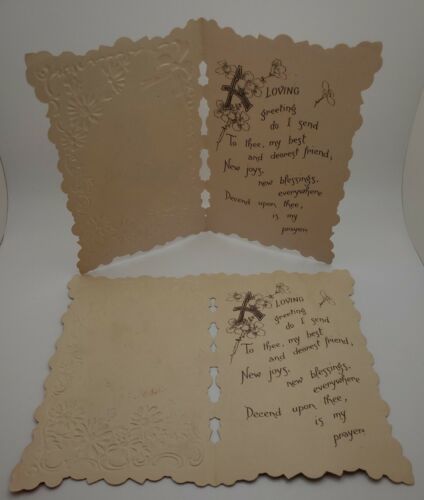 A LOVING
greeting
do I send
To thee, my best
and dearest friend,
New joys,
new blessings,
everywhere
Decend upon thee,
is my
prayer.
A LOVING
greeting
do I send
To thee, my best
and dearest friend,
New joys,
new blessings,
everywhere
Decend upon thee,
is my
prayer.